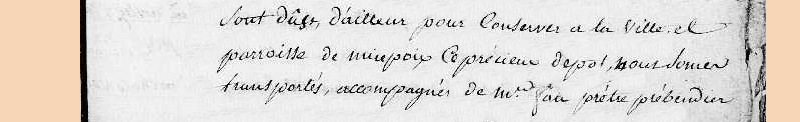 sont dûs, d'ailleur pour Conserver a la Ville et
parroisse de mirepoix Ce précieux depot, nous somes
transportés, accompagnés de mr. prétre prébendier